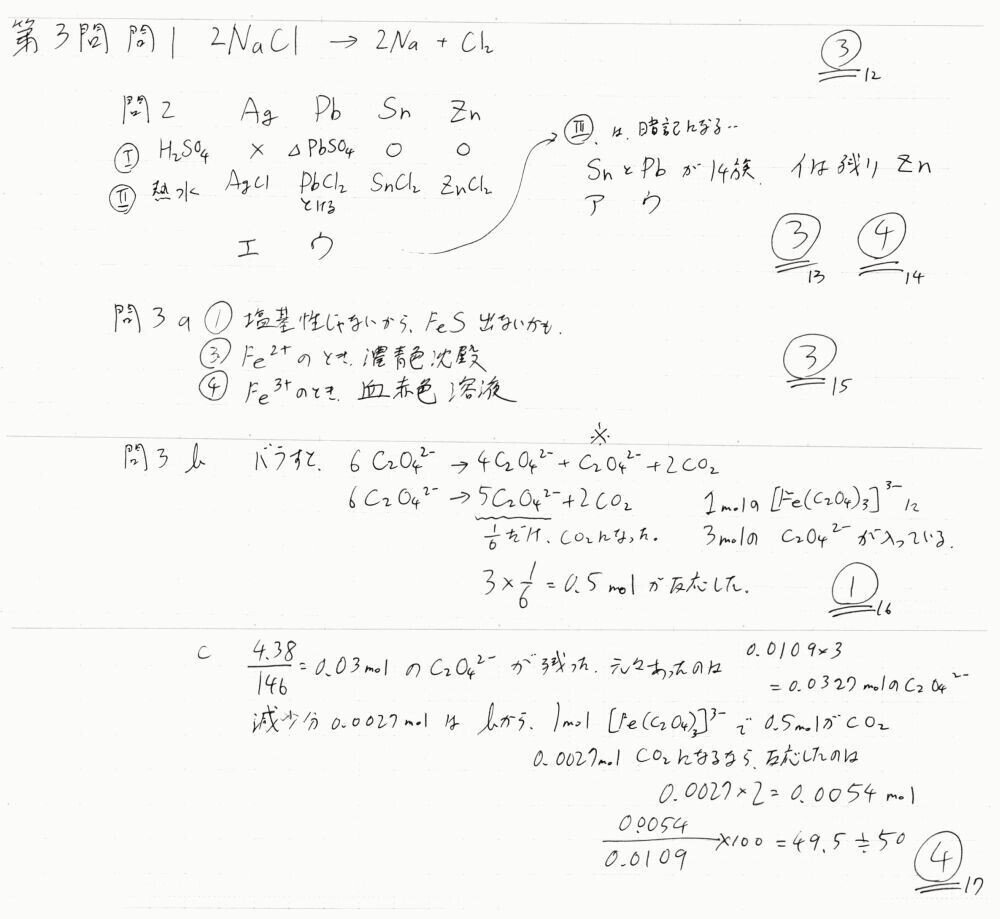 第3問 問1 2NaCl → 2Na + Cl₂ ③12
問2 Ag Pb Sn Zn
Ⅰ H₂SO₄ × △PbSO₄ ○ ○
Ⅱ 熱水 AgCl PbCl₂ SnCl₂ ZnCl₂
とける
エ ウ
Ⅲ は、暗記になる‥
SnとPbが14族、イは残りZn
ア ウ
③13 ④14
問3 a ① 塩基性じゃないから、FeS 出ないかも.
③ Fe²⁺のとき、濃青色沈殿
④ Fe³⁺のとき、血赤色溶液
③15
※
問3 b バラすと、 6C₂O₄²⁻ → 4C₂O₄²⁻ + C₂O₄²⁻ + 2CO₂
6C₂O₄²⁻ → 5C₂O₄²⁻ + 2CO₂ 1molの[Fe(C₂O₄)₃]³⁻に
1/6だけ、CO₂になった。 3molの C₂O₄²⁻が入っている。
3 × 1/6 = 0.5 molが反応した。 ①16
c 4.38/146 = 0.03mol の C₂O₄²⁻ が残った. 元々あったのは 0.0109×3
= 0.0327molのC₂O₄²⁻
減少分 0.0027mol は bから、1mol [Fe(C₂O₄)₃]³⁻で 0.5molがCO₂
0.0027mol CO₂になるなら、反応したのは
0.0027×2 = 0.0054 mol
0.0054/0.0109 ×100 = 49.5 ≒ 50 ④17